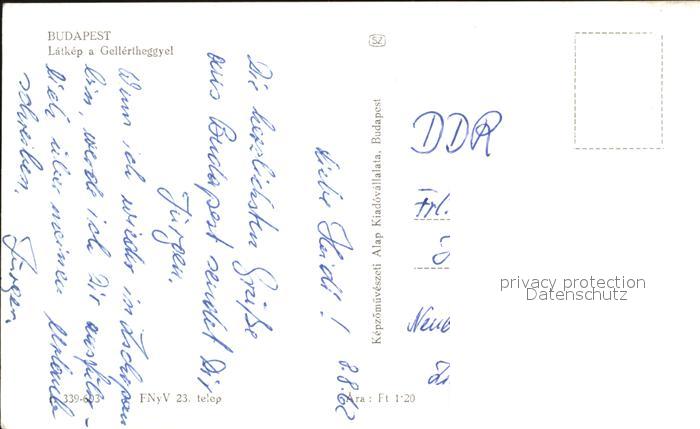 BUDAPEST
Látkép a Gellértheggyel
8.8.62
Liebe Heidi!
Die herzlichsten Grüße
aus Budapest sendet Dir
Jürgen.
Wenn ich wieder in Zschopau
bin, werde ich Dir ausführ-
lich über meinen Urlaub
schreiben.
Jürgen
339-603
FNyV 23. telep
Ára: Ft 1·20
Képzőművészeti Alap Kiadóvállalata, Budapest
SZ
DDR
Frl.
J
privacy protection
Datenschutz